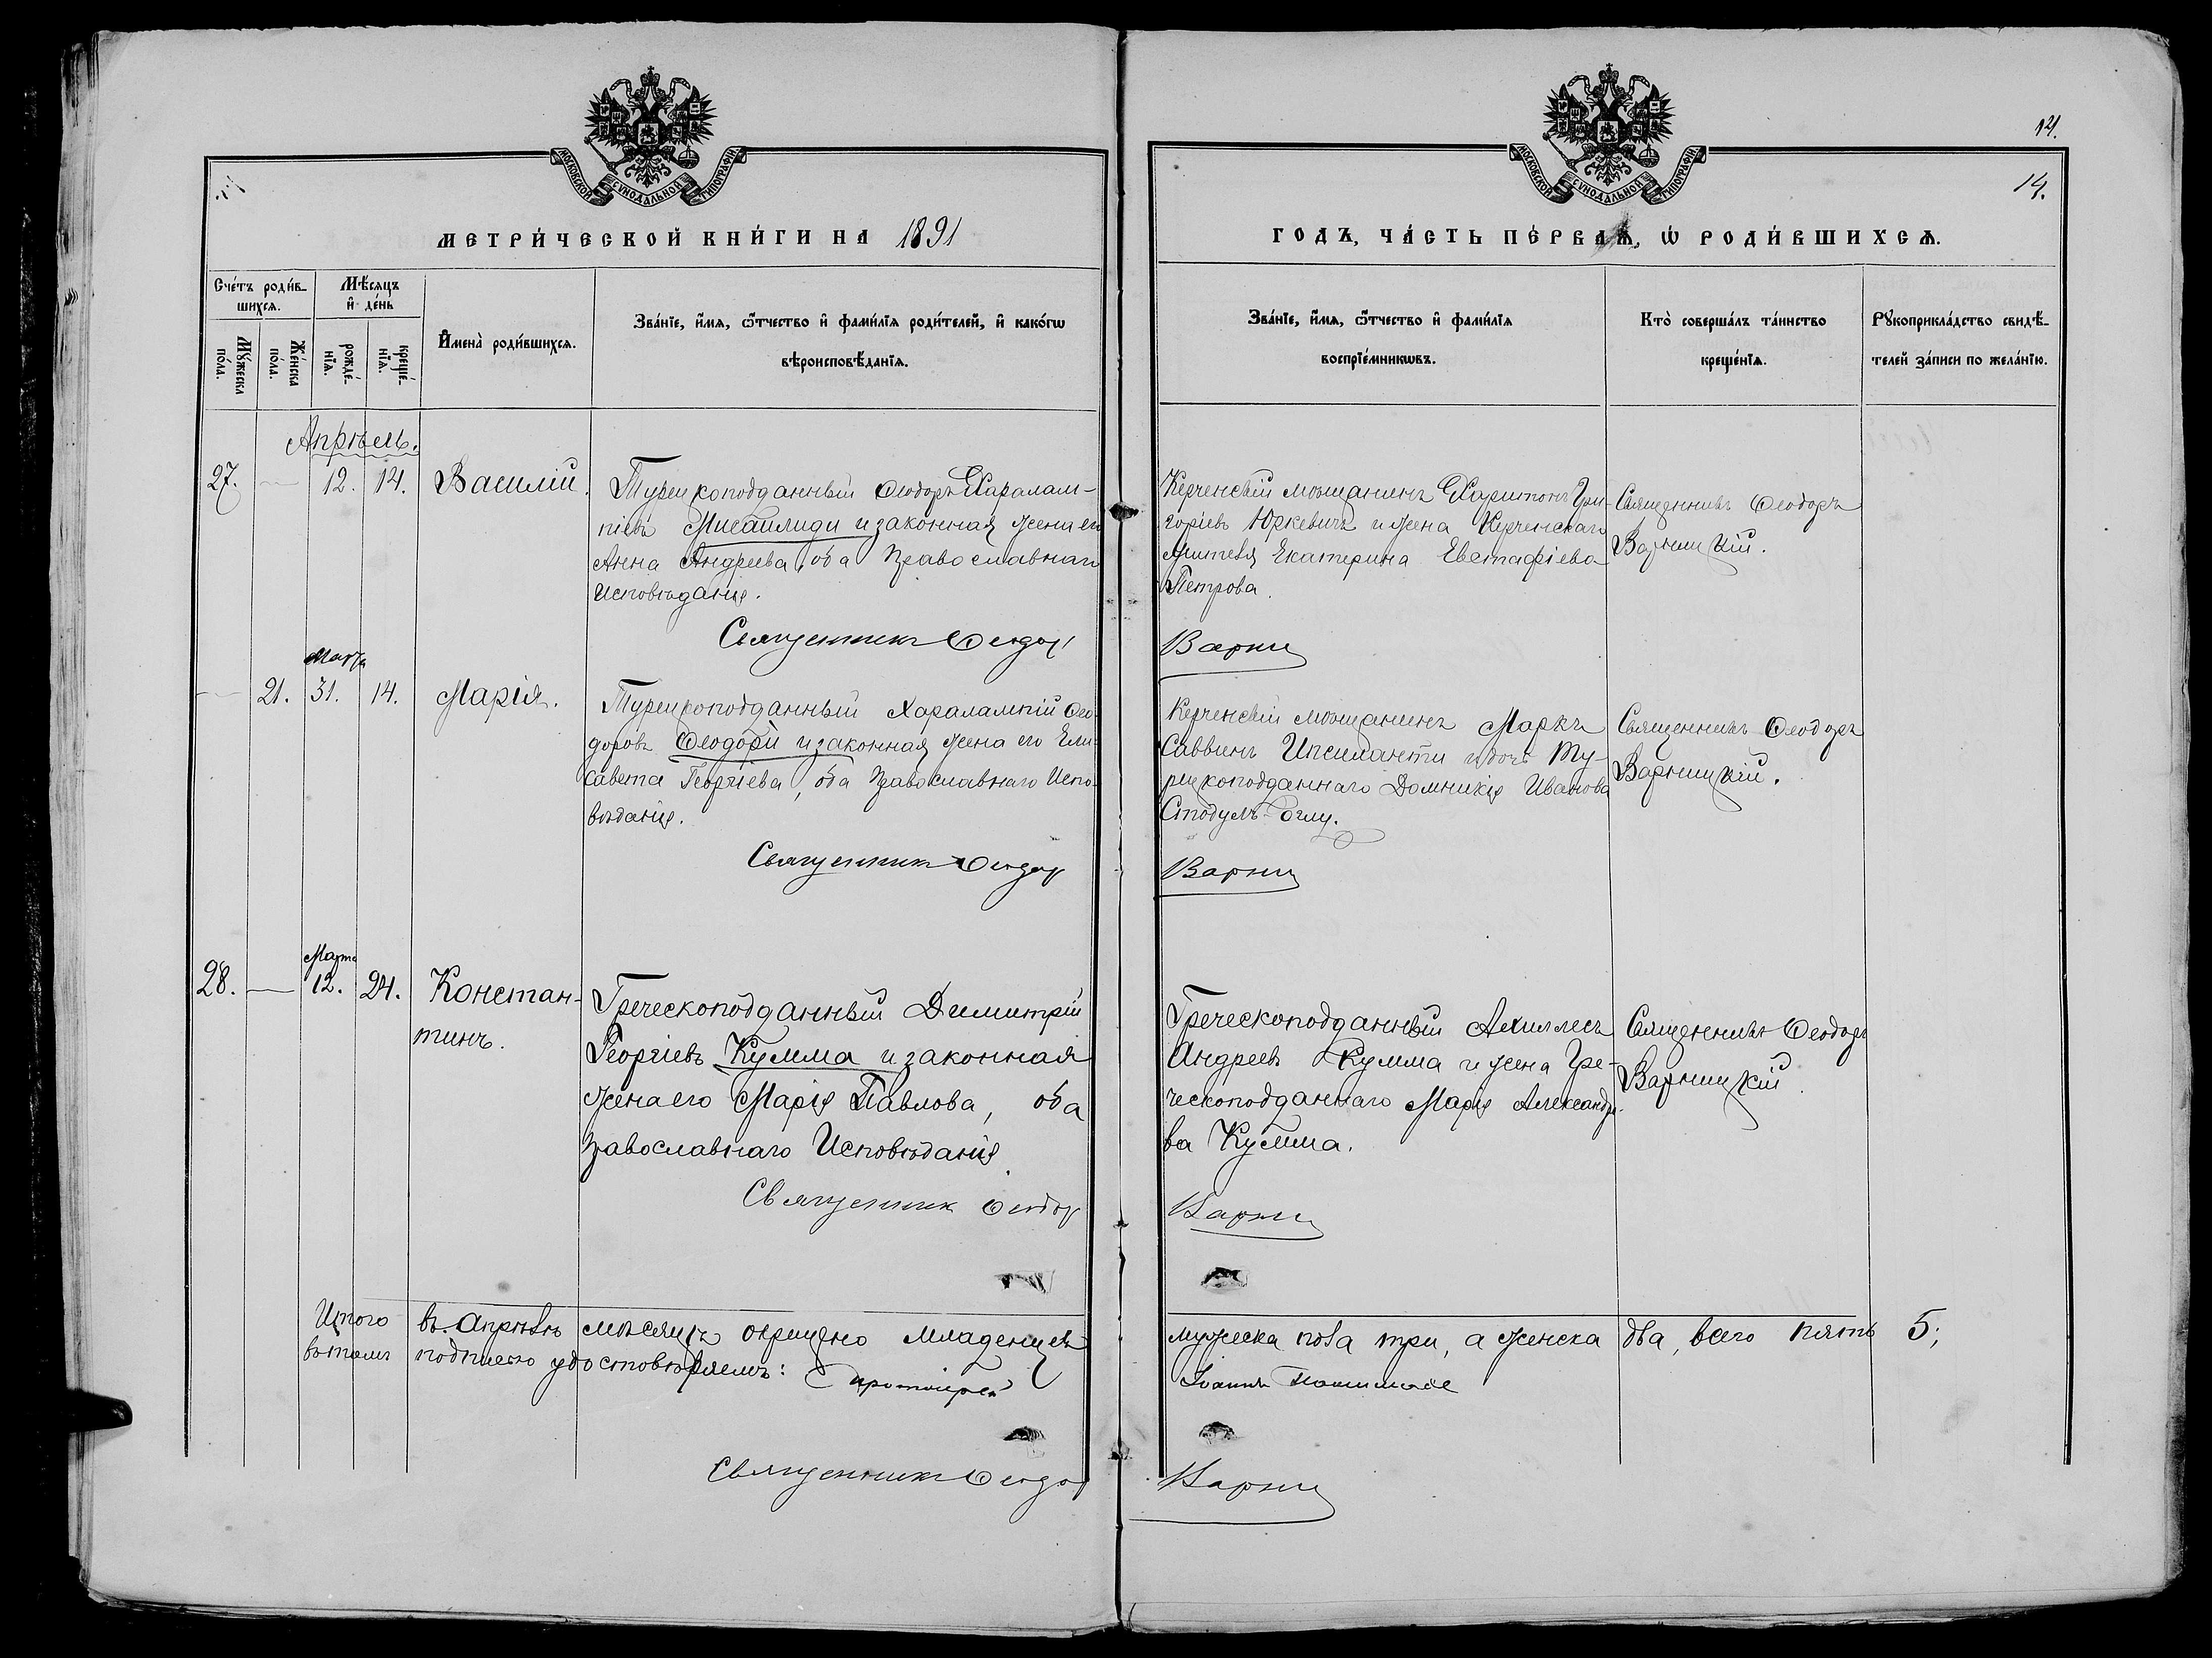 МОСКОВСКОЙ СѴНОДАЛЬНОЙ ТИПОГРАФІИ.
МЕТРИ́ЧЕСКОЙ КНИ́ГИ НА 1891
Сче́тъ роди́в-
шихсѧ.
Мѣ́сѧцъ
и҆ де́нь
Мꙋ́жеска
по́ла.
Же́нска
по́ла.
рожде́-
нїѧ.
креще́-
нїѧ.
И҆мена̀ роди́вшихсѧ.
Зва́нїе, и҆́мѧ, ѻ҆́тчество и҆ фами́лїѧ роди́телей, и҆ како́гѡ
вѣроисповѣ́данїѧ.
Апрѣль.
27. — 12. 14. Василій.
Турецкоподданный Ѳеодоръ Харалам-
піевъ Мисаилиди и законная жена его
Анна Андреева, оба Православнаго
исповѣданія.
Священникъ Ѳеодоръ
Марта
— 21. 31. 14. Марія.
Турецкоподданный Харалампій Ѳео-
доровъ Ѳеодори и законная жена его Ели-
савета Георгіева, оба Православнаго Испо-
вѣданія.
Священникъ Ѳеодор
Марта
28. — 12. 24. Констан-
тинъ.
Греческоподданный Димитрій
Георгіевъ Кумма и законная
жена его Марія Павлова, оба
православнаго Исповѣданія.
Священник Ѳеодор
Итого въ Апрѣлѣ мѣсяцѣ окрещено младенцевъ
въ томъ подписью удостовѣряемъ: протоіерей
Священникъ Ѳеодор
МОСКОВСКОЙ СѴНОДАЛЬНОЙ ТИПОГРАФІИ.
14.
14.
ГОДЪ, ЧА́СТЬ ПЕ́РВАѦ, Ѡ҆ РОДИ́ВШИХСѦ.
Зва́нїе, и҆́мѧ, ѻ҆́тчество и҆ фами́лїѧ
воспрїе́мникѡвъ.
Кто̀ соверша́лъ та́инство
креще́нїѧ.
Рꙋкоприкла́дство свидѣ́-
телей за́писи по жела́нїю.
Керченскій мѣщанинъ Харитонъ Гри-
горіевъ Юркевичъ и жена Керченскаго
жителя Екатерина Евстафіева
Петрова.
Священникъ Ѳеодоръ
Варницкій.
Варни
Керченскій мѣщанинъ Маркъ
Саввинъ Ипсиланти и дочь Ту-
рецкоподданнаго Домникія Иванова
Стодулъ-Оглу.
Священникъ Ѳеодоръ
Варницкій.
Варни
Греческоподданный Ахиллесъ
Андреевъ Кумма и жена Гре-
ческоподданнаго Марія Александро-
ва Кумма.
Священникъ Ѳеодоръ
Варницкій.
Варни
мужеска пола три, а женска два, всего пять 5;
Іоаннъ
Варни